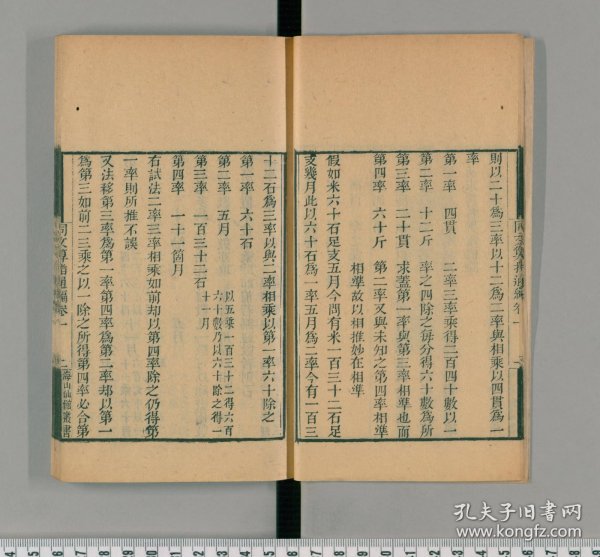 則以二十為三率以十二為二率與相乘以四貫為一
率
第一率　四貫　二率三率乘得二百四十數以一
第二率　十二斤　率之四除之每分得六十數為所
第三率　二十貫　求蓋第一率與第三率相準也而
第四率　六十斤　第二率又與未知之第四率相準
相準故以相推妙在相準
假如米六十石足支五月今問有米一百三十二石足
支幾月此以六十石為一率五月為二率今有一百三
十二石為三率以與二率相乘以第一率六十除之
第一率　六十石
第二率　五月　以五乘一百三十二得六百
六十數乃以六十除之得一
十一月
第三率　一百三十二石
第四率　一十一箇月
右試法二率三率相乘如前却以第四率除之仍得第
一率則所推不誤
又法移第三率為第一率第四率為第二率却以第一
為第三如前二三乘之以一除之所得第四率必合第
同文算指通編卷一
海山仙館叢書
孔夫子旧书网
www.kongfz.com